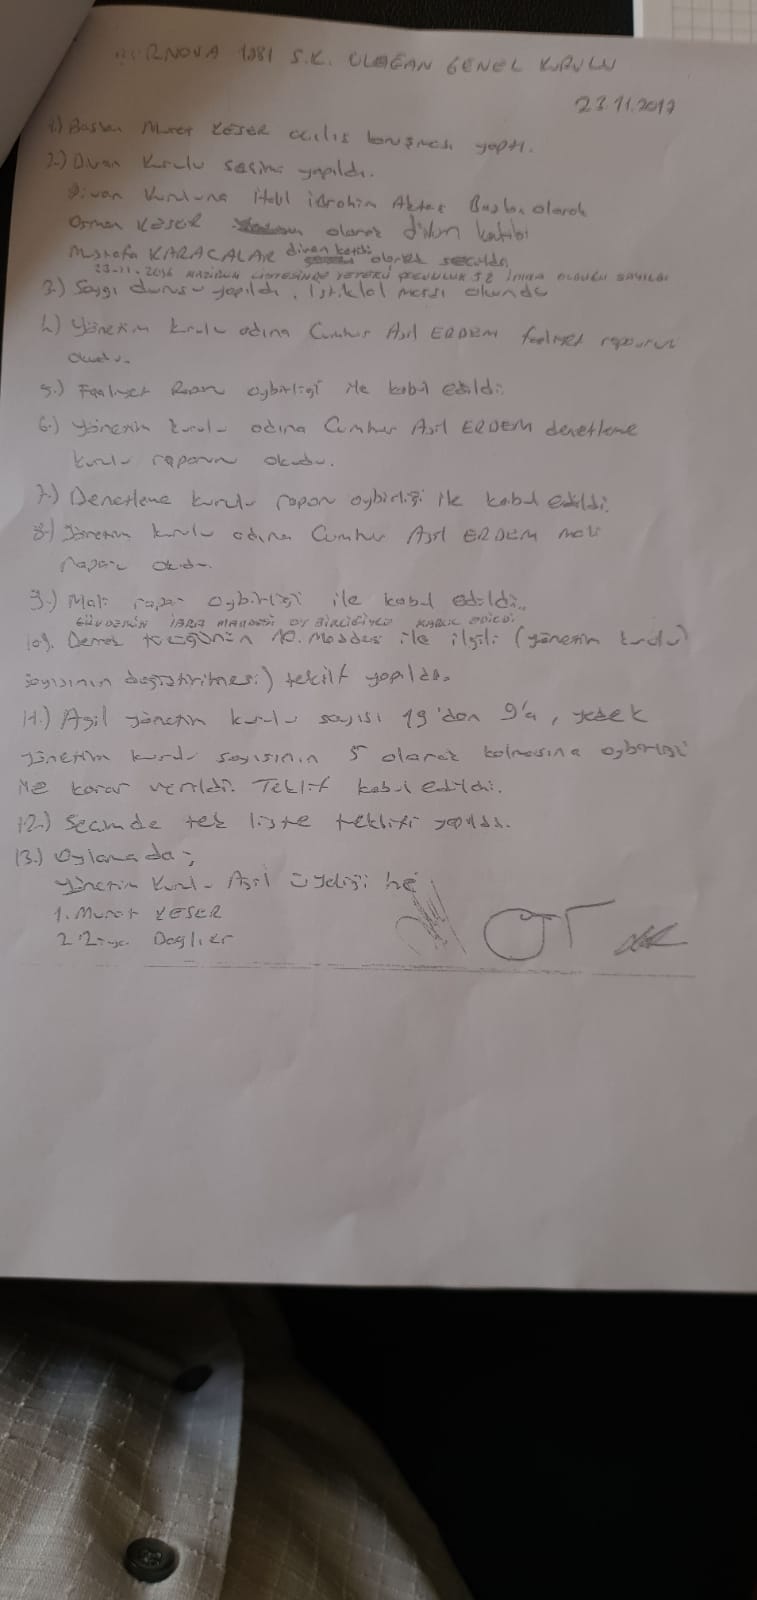 BORNOVA 1881 S.K. OLAĞAN GENEL KURULU
23.11.2017
1) Başkan Murat KESER açılış konuşması yaptı.
2.) Divan Kurulu seçimi yapıldı.
Divan Kuruluna Halil ibrahim Aktaş Başkan olarak
Osman KESER olarak divan katibi
Mustafa KARACALAR divan katibi olarak seçildi.
23.11.2016 HAZİRUN LİSTESİNDE YETERLİ ÇOĞUNLUK 52 İMZA OLDUĞU SAYILDI
3.) Saygı duruşu yapıldı, İstiklal marşı okundu
4.) Yönetim kurulu adına Cumhur Asıl ERDEM faaliyet raporunu
okudu.
5.) Faaliyet Raporu oybirliği ile kabul edildi.
6.) Yönetim kurulu adına Cumhur Asıl ERDEM denetleme
kurulu raporunu okudu.
7.) Denetleme kurulu raporu oybirliği ile kabul edildi.
8.) Yönetim kurulu adına Cumhur Asıl ERDEM mali
raporu okudu.
9.) Mali rapor oybirliği ile kabul edildi.
İBRA MADDESİ OY BİRLİĞİYLE KABUL EDİLDİ
10). Dernek tüzüğünün 10. Maddesi ile ilgili (yönetim kurulu)
sayısının değiştirilmesi) teklif yapıldı.
11.) Asil yönetim kurulu sayısı 19'dan 9'a, yedek
yönetim kurulu sayısının 5 olarak kalmasına oybirliği
ile karar verildi. Teklif kabul edildi.
12.) Seçimde tek liste teklifi yapıldı.
13.) Oylamada;
Yönetim Kurulu Asil üyeliği'ne
1. Murat KESER
2. Dağlıer